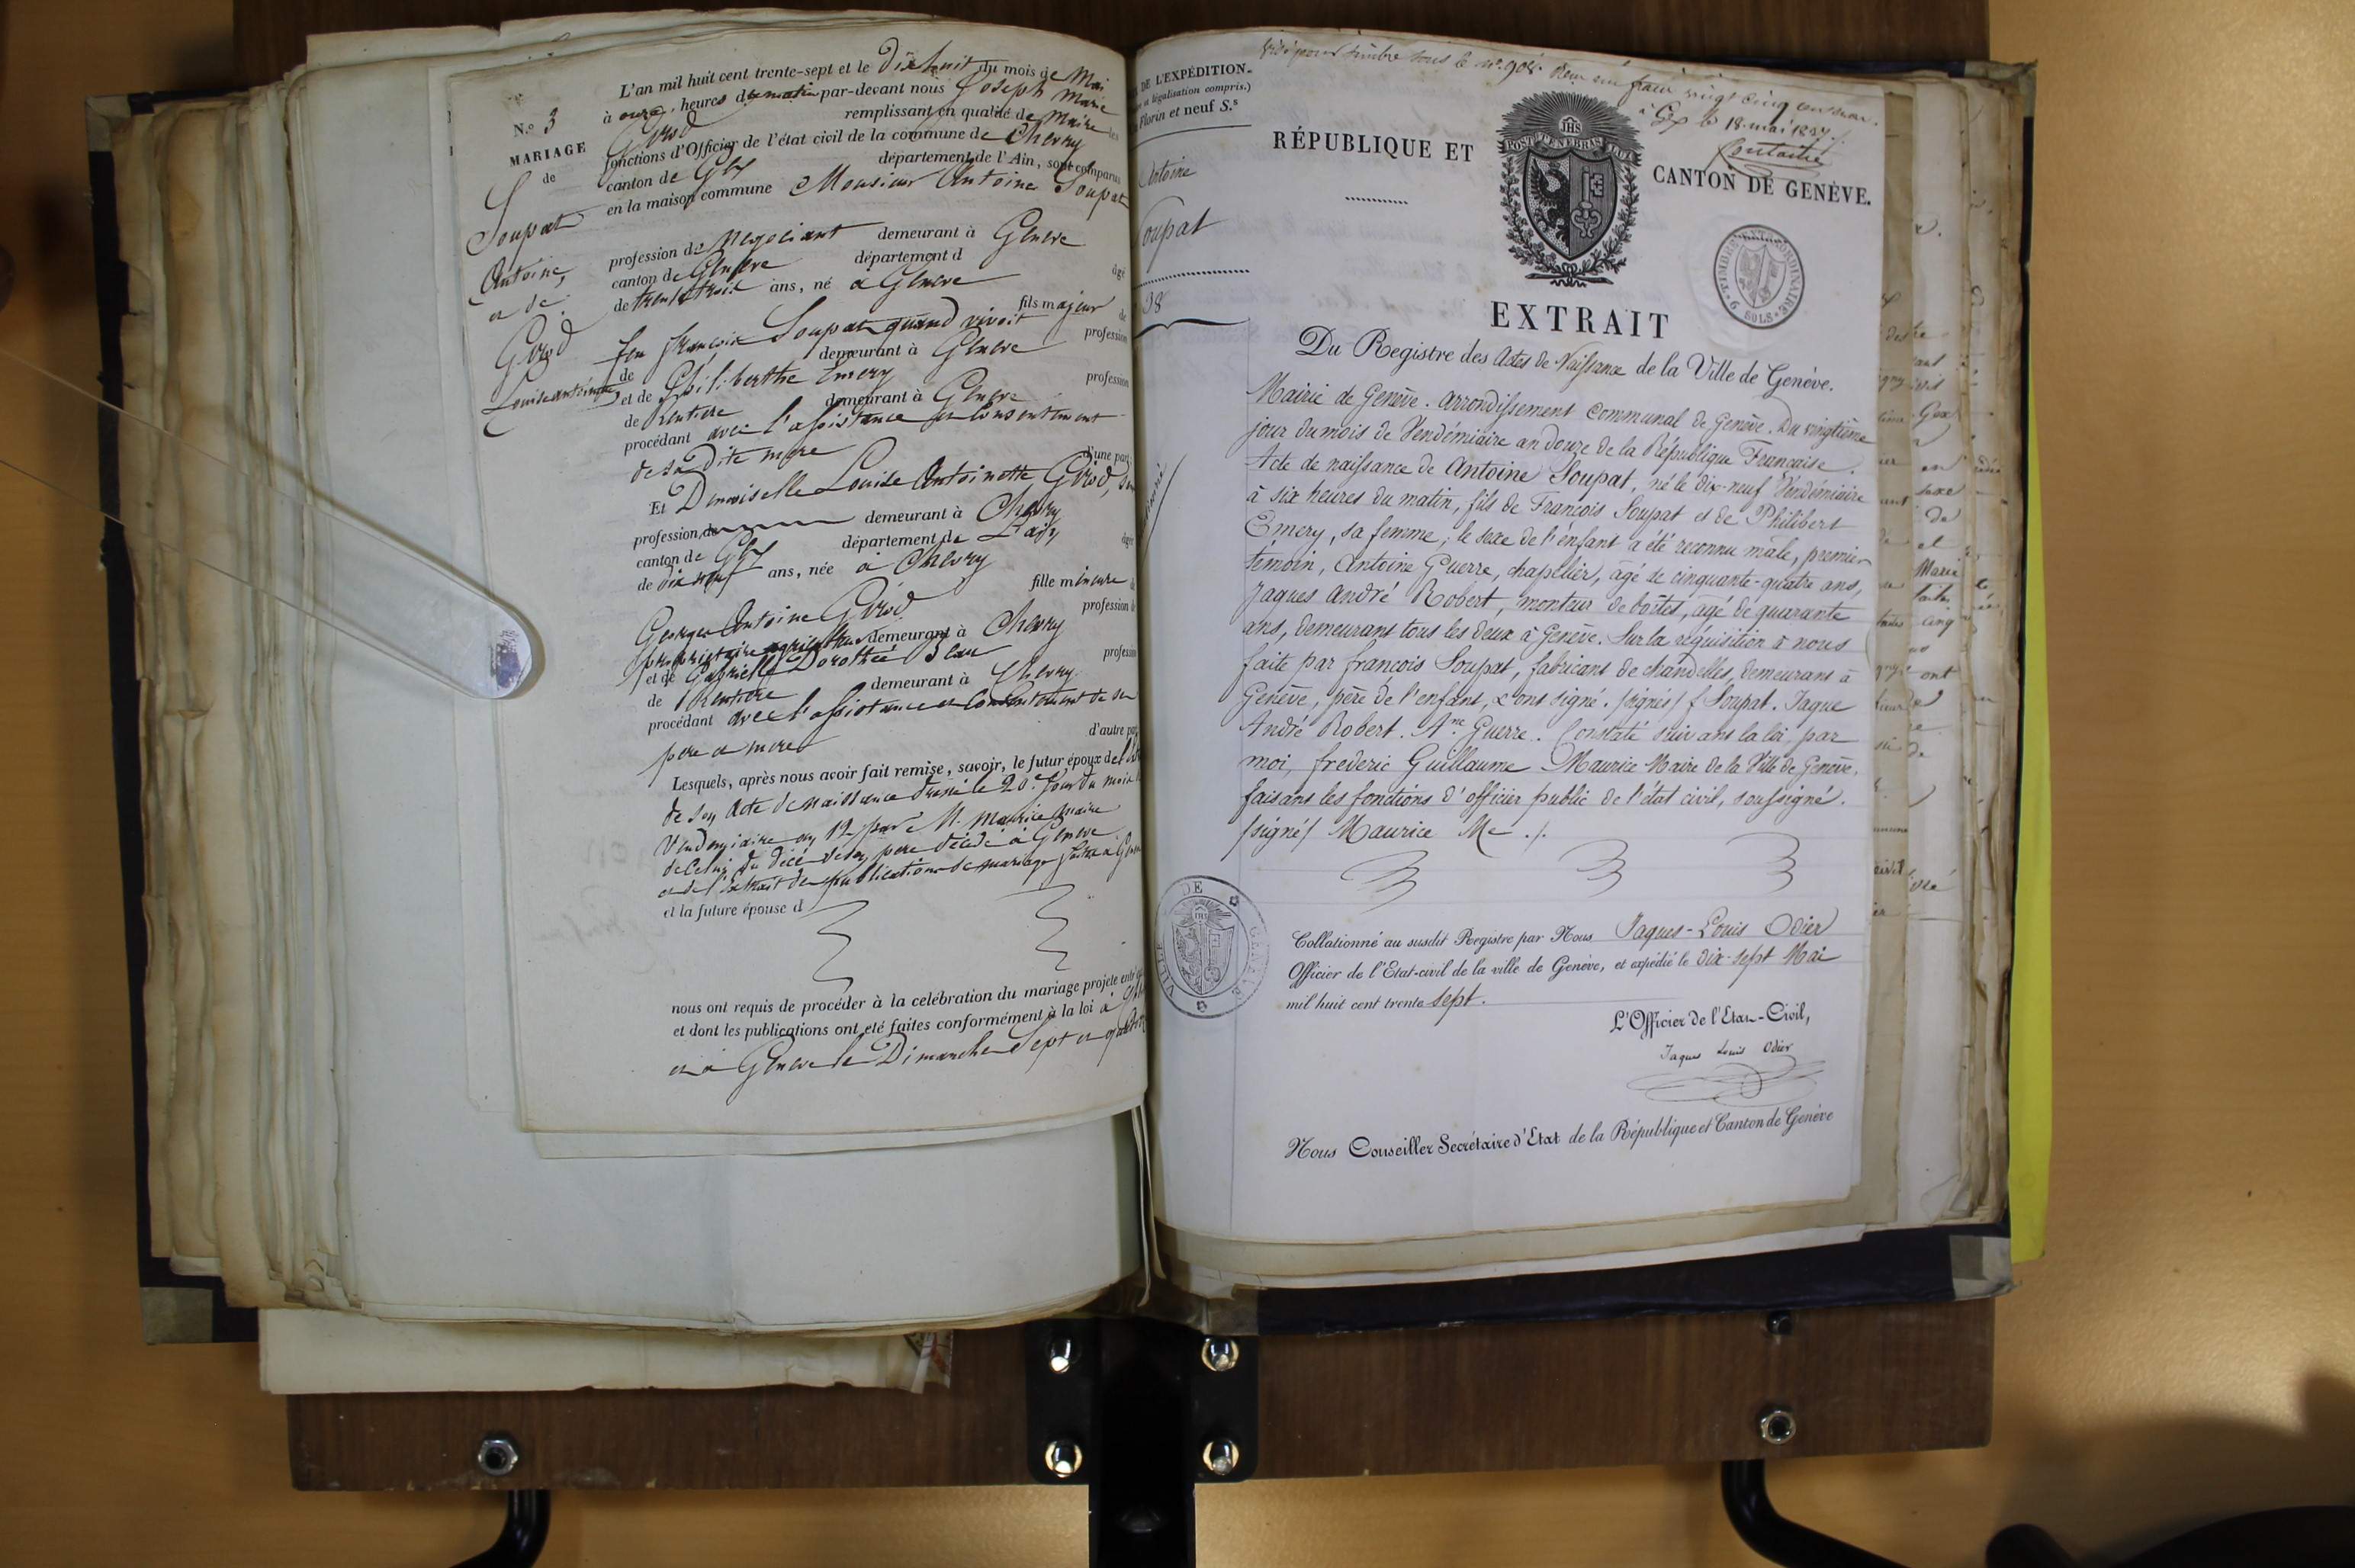 L'an mil huit cent trente-sept et le Dixhuit du mois de Mai
à onze heures du matin par-devant nous Joseph Marie
Girod remplissant en qualité de Maire les
fonctions d'Officier de l'état civil de la commune de Chevry
canton de Gex département de l'Ain, sont comparus
en la maison commune Monsieur Antoine Soupat
N.o 3
MARIAGE
de
Soupat
Antoine,
et de
Girod
Louise antoinette
profession de Negociant demeurant à Geneve
canton de Geneve département d
âgé
de trente trois ans, né à Geneve
fils majeur de
feu françois Soupat quand vivoit profession
de demeurant à Geneve
et de Philiberthe Emery profession
de Rentiere demeurant à Geneve
procédant avec l'assistance et consentement
de sa dite mere d'une part
Et Demoiselle Louise Antoinette Girod,
profession de demeurant à Chevry
canton de Gex département de L'ain âgée
de dix neuf ans, née à Chevry
fille mineure
Georges Antoine Girod profession de
propriétaire agriculteur demeurant à Chevry
et de Gabrielle Dorothée profession
de Rentiere demeurant à Chevry
procédant avec l'assistance et Consentement de ses
pere et mere d'autre part
Lesquels, après nous avoir fait remise, savoir, le futur époux de
de son Acte de naissance dressé le 20e. Jour du mois de
Vendemiaire an 12 par M. Maurice Maire
de Celui du décé de son pere décédé à Geneve
et de l'extrait des publications de mariage faites à
et la future épouse d
nous ont requis de procéder à la celébration du mariage projete entr'eux
et dont les publications ont eté faites conformément à la loi à
et à Geneve le Dimanche Sept et
Visé pour timbre sous le n°. 908. Reçu un franc vingt cinq centimes.
à Gex le 18. mai 1837.
DE L'EXPÉDITION.
légalisation compris.)
Florin et neuf S.s
Antoine
Soupat
98
RÉPUBLIQUE ET
CANTON DE GENÈVE.
JHS
POST TENEBRAS LUX
TIMBRE EXTRAORDINAIRE
9 SOLS
EXTRAIT
Du Registre des Actes de Naissance de la Ville de Genève.
Mairie de Genève. Arrondissement Communal de Genève. Du vingtième
jour du mois de Vendémiaire an douze de la République Française.
Acte de naissance de Antoine Soupat, né le dix-neuf Vendémiaire
à six heures du matin, fils de François Soupat et de Philibert
Emery, sa femme; le sexe de l'enfant a été reconnu mâle, premier
témoin, Antoine Guerre, chapelier, âgé de cinquante-quatre ans,
Jaques André Robert, monteur de boîtes, âgé de quarante
ans, demeurans tous les deux à Genève. Sur la réquisition à nous
faite par françois Soupat, fabricant de chandelles, demeurant à
Genève, père de l'enfant, & ont signé. /signés/ f Soupat. Jaque
André Robert. A.ne Guerre. Constaté suivant la loi par
moi, frederic Guillaume Maurice Maire de la Ville de Genève,
faisant les fonctions d'officier public de l'état civil, soussigné.
/signé/ Maurice Me ./.
VILLE DE GENÈVE
Collationné au susdit Registre par Nous Jaques-Louis Odier
Officier de l'Etat-civil de la ville de Genève, et expédié le dix-sept Mai
mil huit cent trente sept.
L'Officier de l'Etat-Civil,
Jaques Louis Odier
Nous Conseiller Secrétaire d'Etat de la République et Canton de Genève